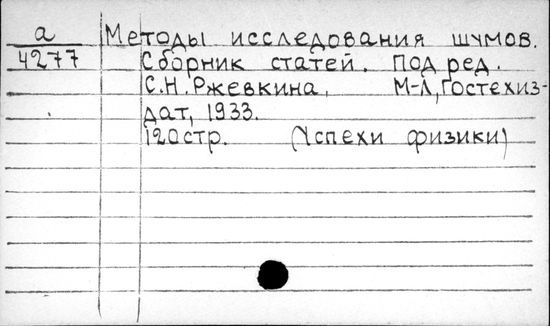 а Методы исследования шумов.
4277 Сборник статей. Под ред.
С.Н. Ржевкина, М-Л, Гостехиз-
дат, 1933.
120стр. (Успехи физики)